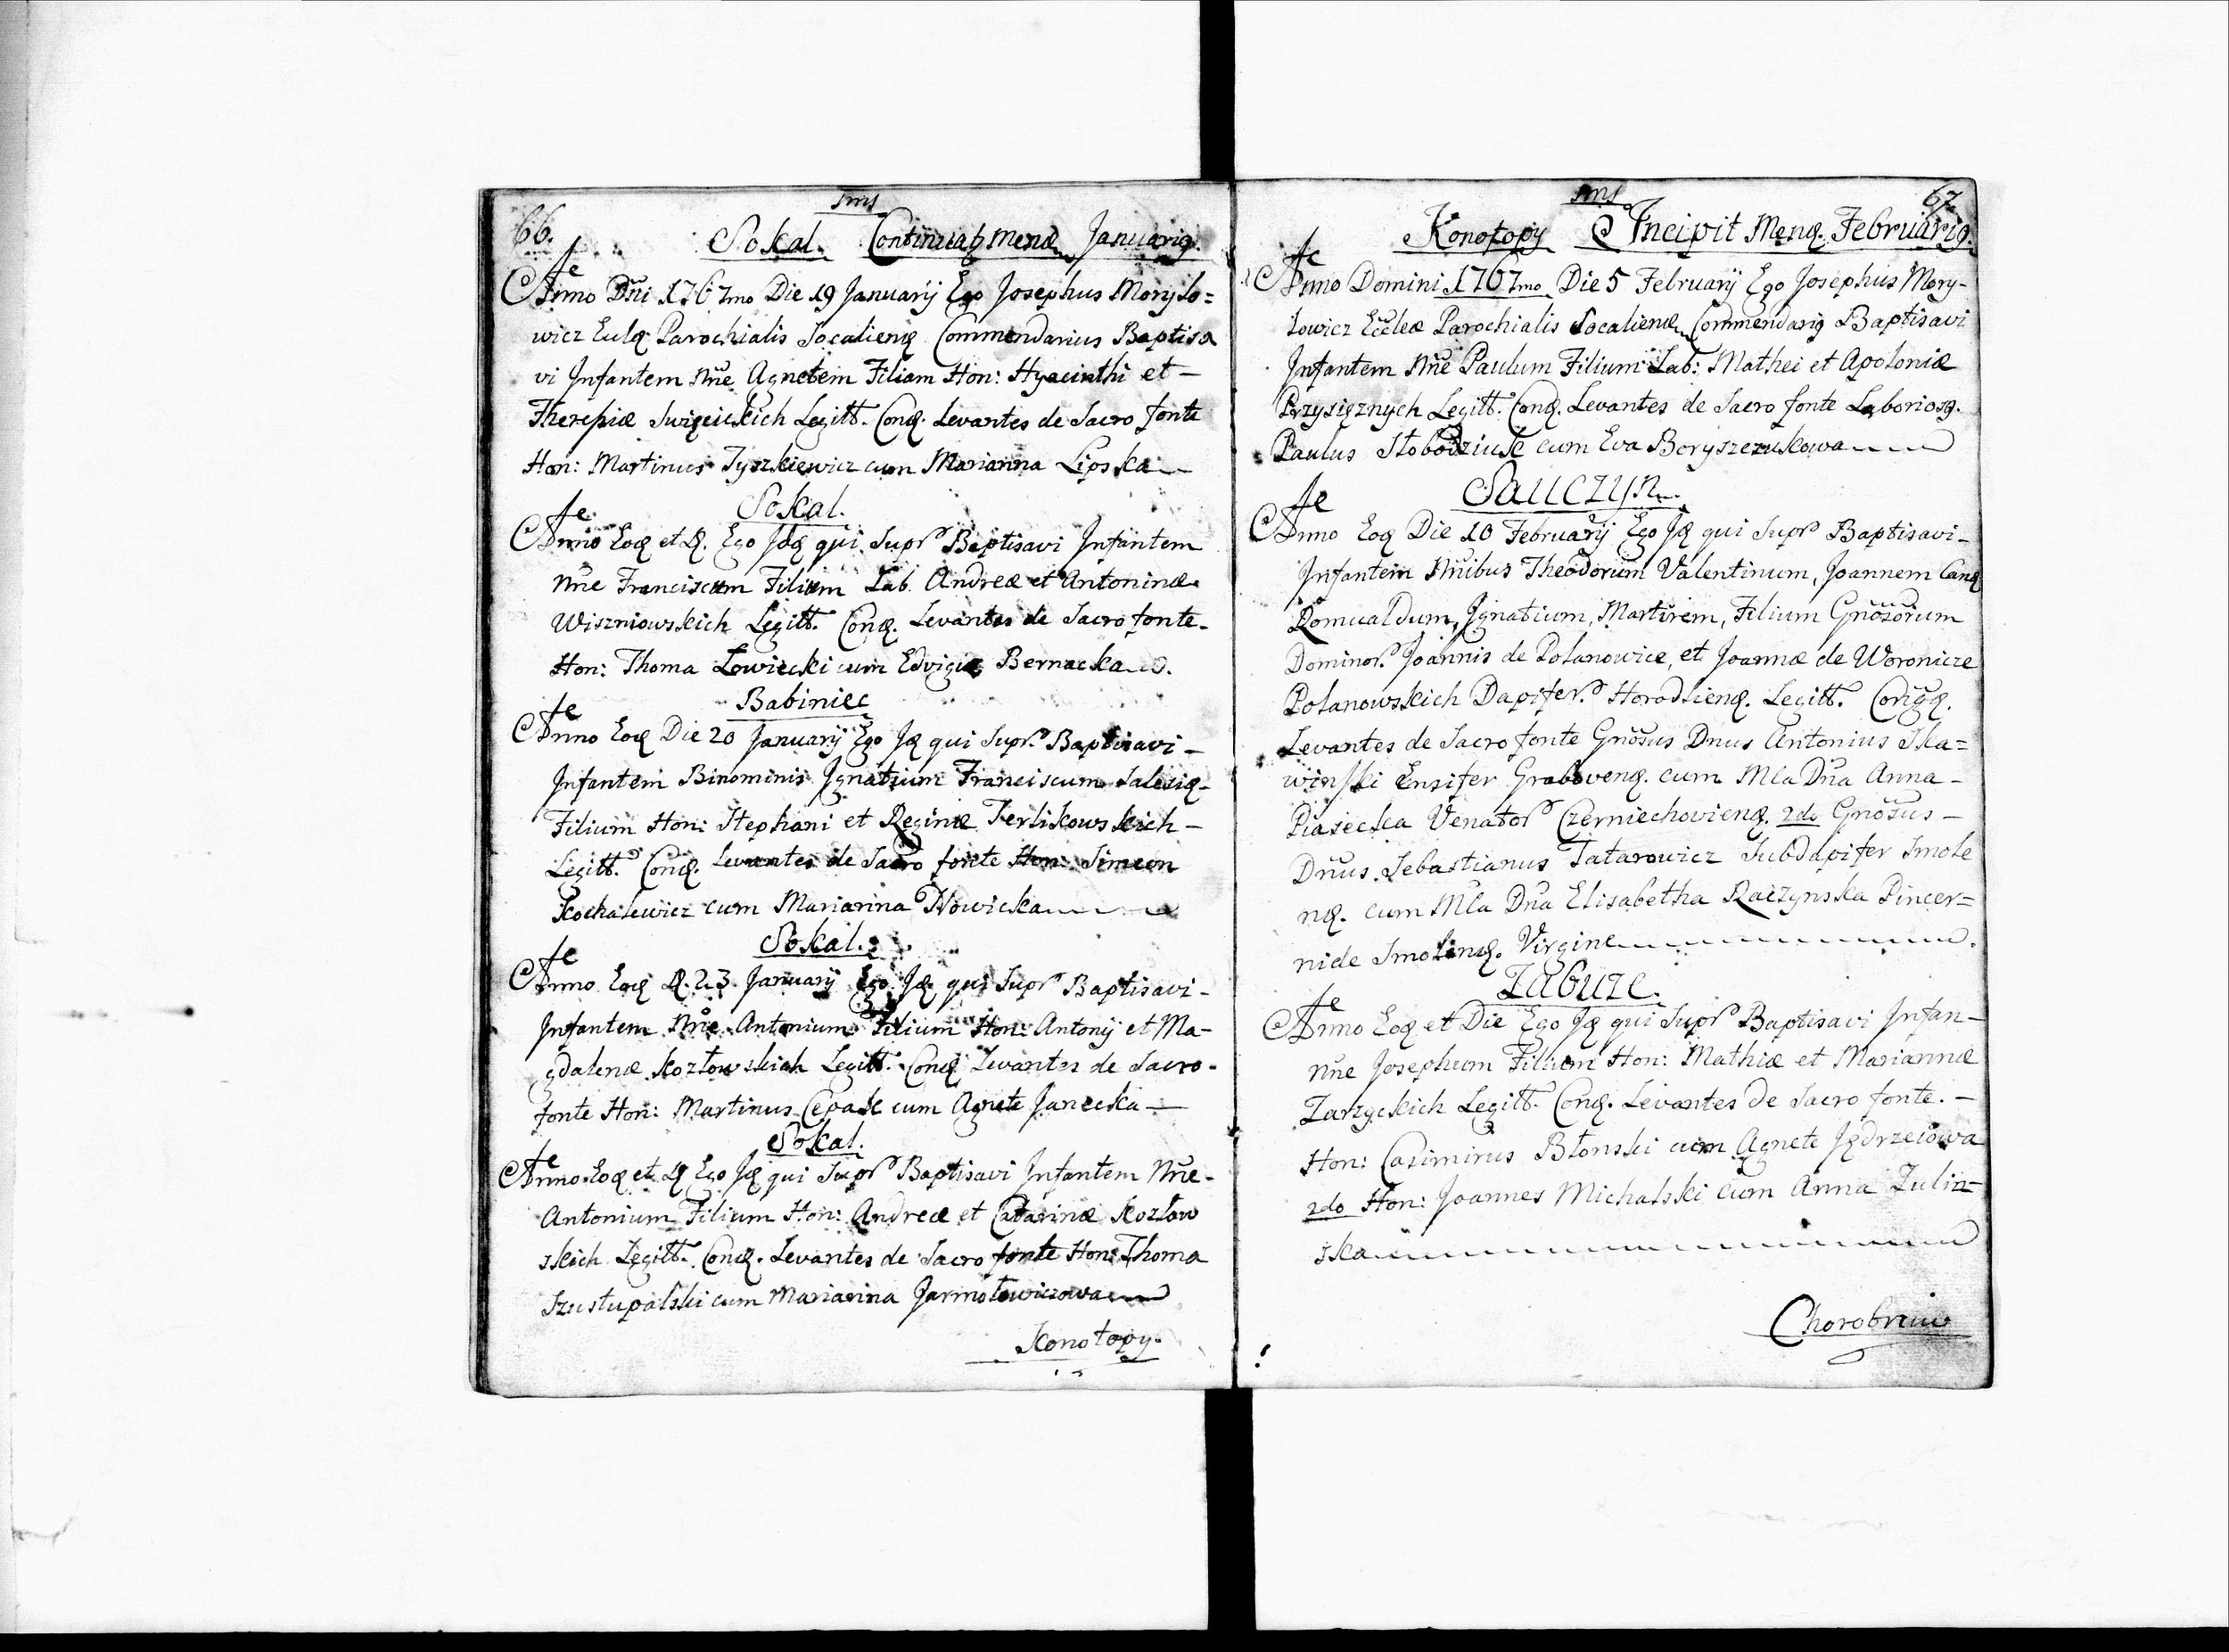 66.
Sokal. Continuatq Mensq Januariq.
Anno Dñi 1767mo Die 19 Januarij Ego Josephus Moryło=
wicz Parochialis Socalienq Commendarius Baptisa
vi Infantem Nñe Agnetem Filiam Hon: Hyacinthi et —
Theresiæ Legitt. Conq. Levantes de Sacro fonte
Hon: Martinus Tyszkiewicz cum Marianna Lipska
Sokal.
Anno Eoq et D. Ego Idq qui Supr Baptisavi Infantem
Nñe Franciscum Filium Lab. Andreæ et Antoninæ
Wiszniowskich Legitt. Conq. Levantes de Sacro fonte.
Hon: Thoma Łowiecki cum Edvigia Bernacka
Babiniec
Anno Eoq Die 20 Januarij Ego Iq qui Supr. Baptisavi —
Infantem Binominis Ignatium Franciscum Salesiq —
Filium Hon: Stephani et Reginæ Terlikowskich —
Legitt. Conq. Levantes de Sacro fonte Hon: Simeon
Kochalewicz cum Marianna Nowicka
Sokal.
Anno Eoq D. 23 Januarij Ego Iq qui Supr Baptisavi —
Infantem Nñe Antonium Filium Hon: Antonij et Ma-
gdalenæ Kozłowskich Legitt. Conq Levantes de Sacro -
fonte Hon: Martinus Cepak cum Agnete Janecka —
Sokal.
Anno Eoq et D Ego Iq qui Supr Baptisavi Infantem Nñe -
Antonium Filium Hon: Andreæ et Catarinæ Kozłow
skich Legitt. Conq. Levantes de Sacro fonte Hon: Thoma
Szustupalski cum Marianna Jarmołowiczowa
Konotopy.
67.
Konotopy Incipit Mensq. Februariq.
Anno Domini 1767mo Die 5 Februarij Ego Josephus Mory-
łowicz Eccleæ Parochialis Socalienq Commendariq Baptisavi
Infantem Nñe Paulum Filium Lab: Mathei et Apoloniæ
Przysięznych Legitt. Conq. Levantes de Sacro fonte Laboriosq.
Paulus Słobodziuk cum Eva Boryszczukowa
Sauczyn.
Anno Eoq Die 10 Februarij Ego Iq qui Supr Baptisavi -
Infantem Nñibus Theodorum Valentinum, Joannem Canq
Romualdum, Ignatium, Martirem, Filium Gnõsõrum
Dominor. Joannis de Polanowice, et Joannæ de Woronicze
Polanowskich Dapifer. Horodlienq. Legitt. Conjq.
Levantes de Sacro fonte Gnõsus Dnus Antonius Ska=
winski Ensifer Grabovenq. cum Mla Dña Anna —
Piasecka Venator Czerniechovienq. 2do Gnõsus —
Dñus Sebastianus Tatarowicz Subdapifer Smole
nq. cum Mla Dña Elisabetha Raczynska Pincer=
nide Smolenq. Virgine
Zabuze.
Anno Eoq et Die Ego Iq qui Supr Baptisavi Infan —
Nñe Josephum Filium Hon: Mathiæ et Mariannæ
Zarzyckich Legitt. Conq. Levantes de Sacro fonte. —
Hon: Casimirus Błonski cum Agnete Jędrzeiowa
2do Hon: Joannes Michalski cum Anna Zulin-
ska